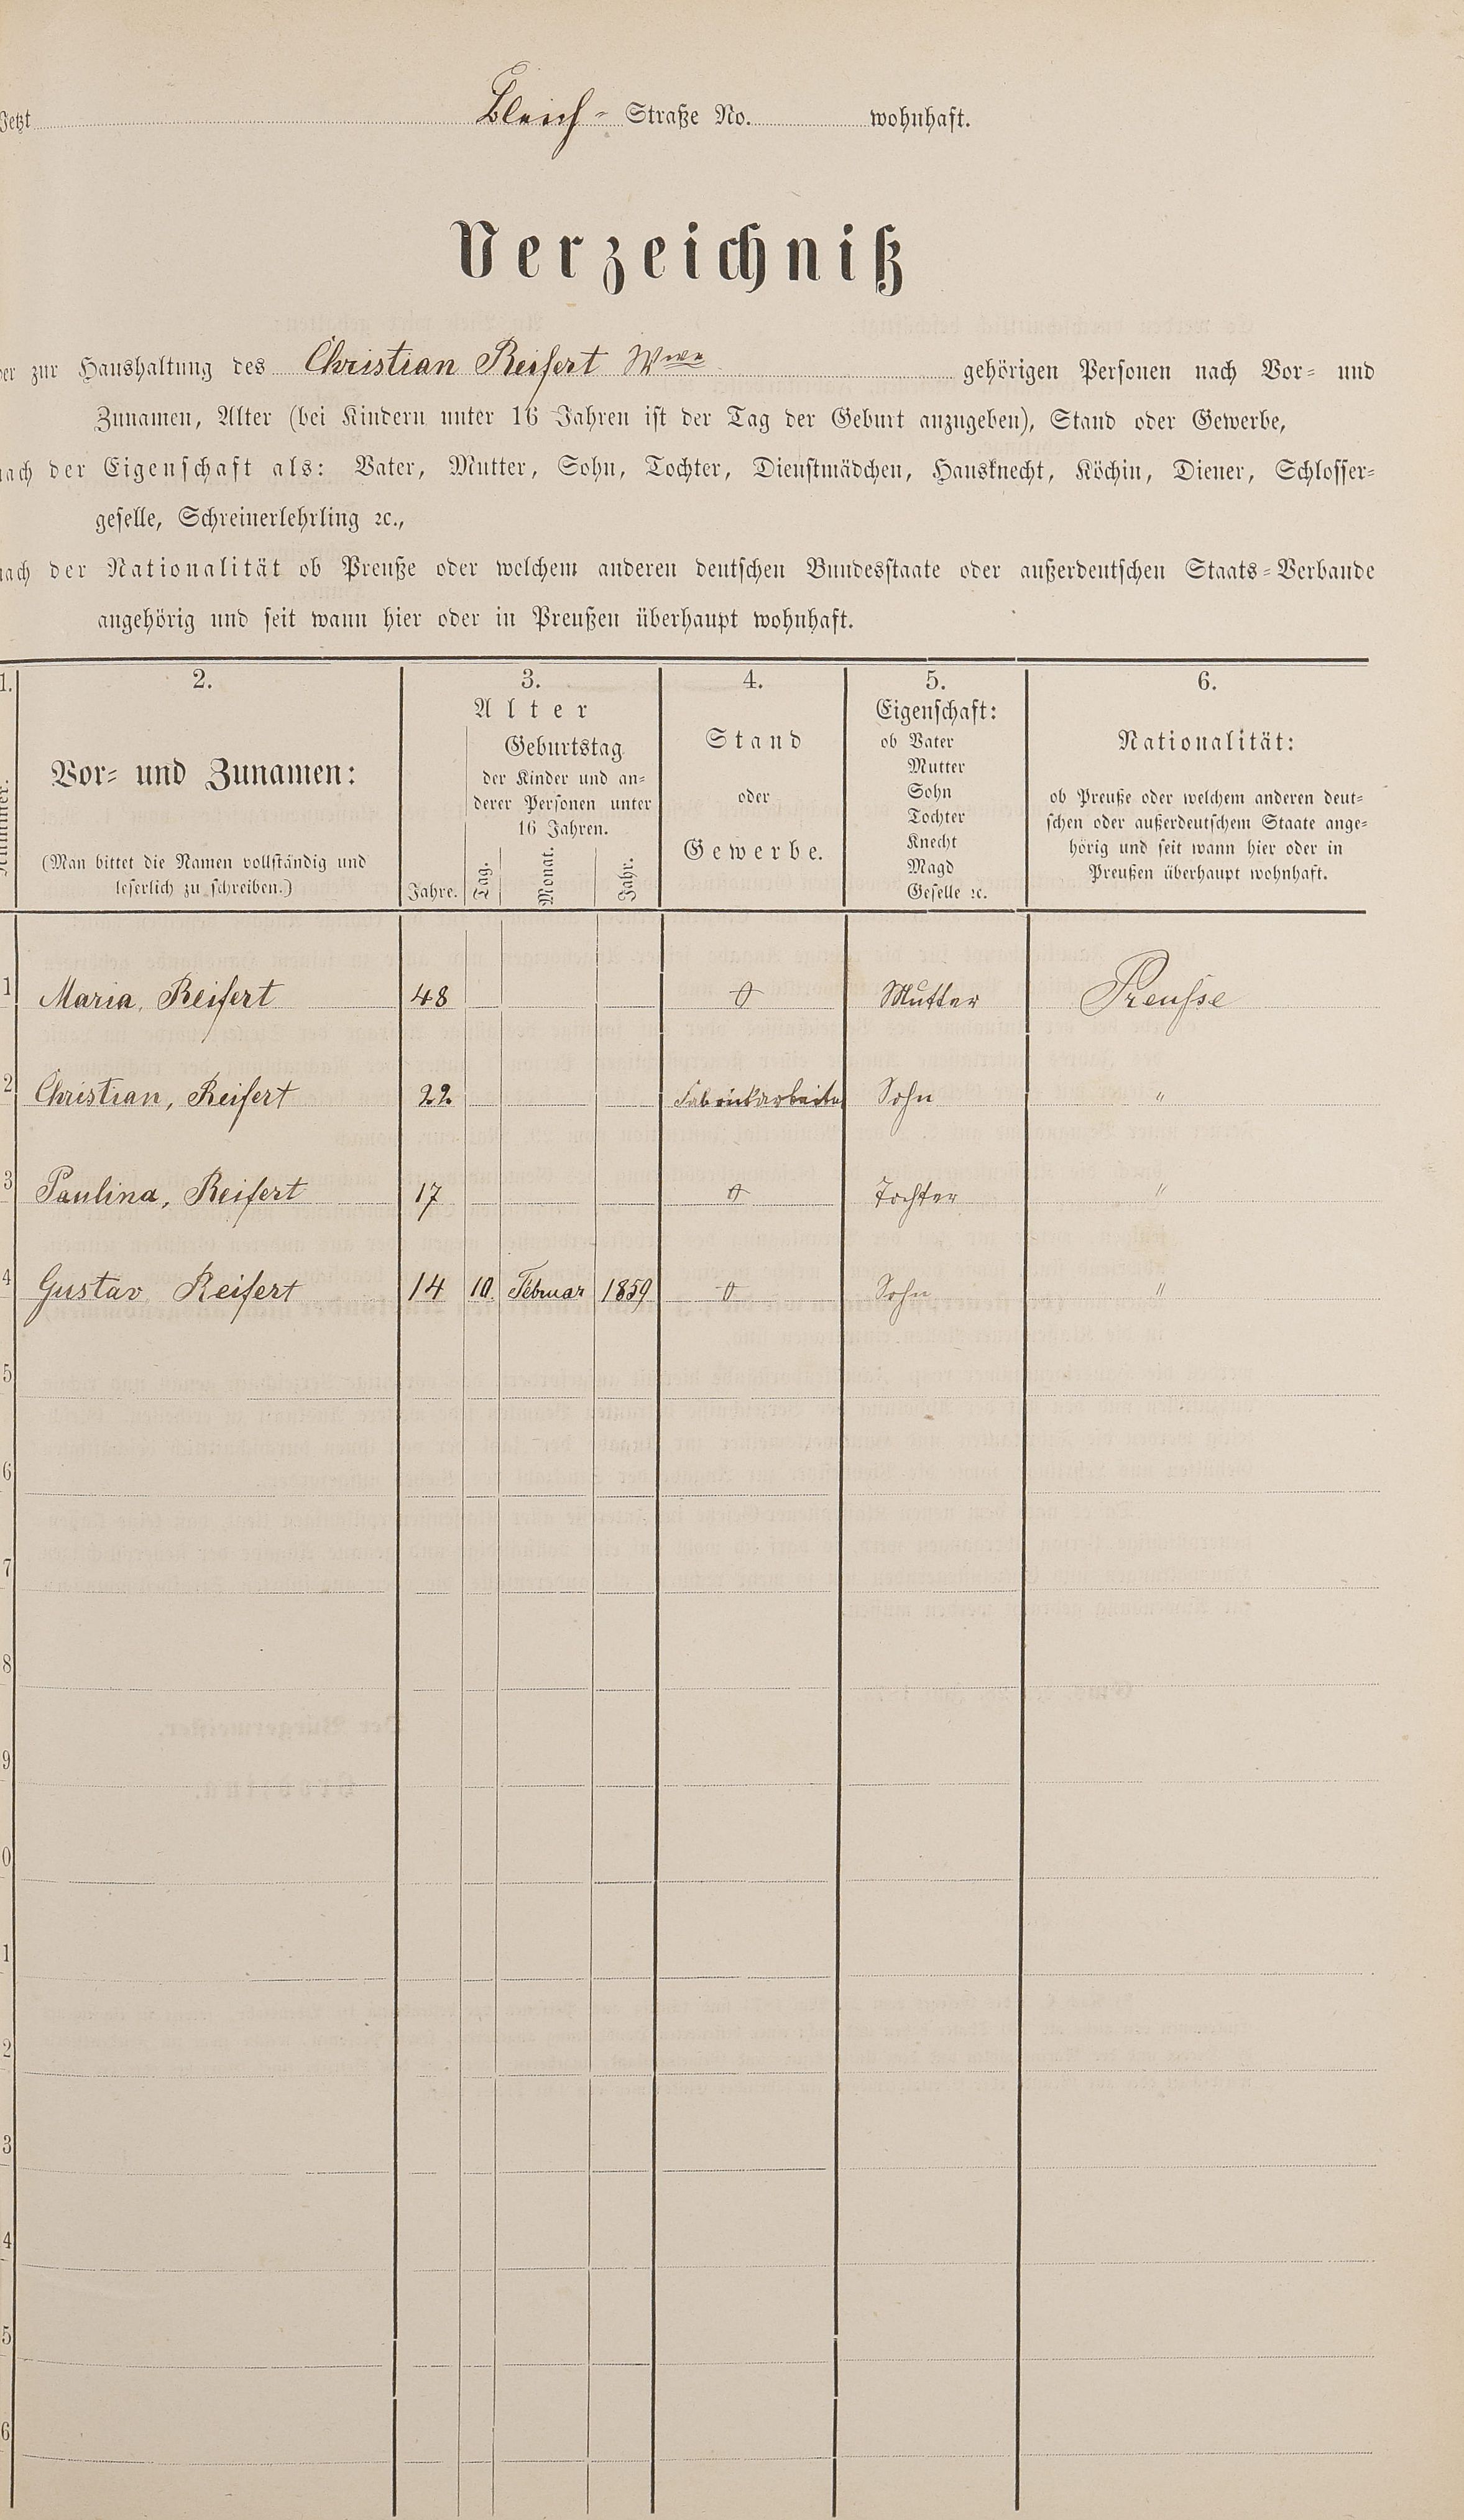 Jetzt Bleich- Straße No. wohnhaft.
Verzeichniß
der zur Haushaltung des Christian Reifert Wwe gehörigen Personen nach Vor- und
Zunamen, Alter (bei Kindern unter 16 Jahren ist der Tag der Geburt anzugeben), Stand oder Gewerbe,
nach der Eigenschaft als: Vater, Mutter, Sohn, Tochter, Dienstmädchen, Hausknecht, Köchin, Diener, Schlosser-
geselle, Schreinerlehrling ꝛc.,
nach der Nationalität ob Preuße oder welchem anderen deutschen Bundesstaate oder außerdeutschen Staats-Verbande
angehörig und seit wann hier oder in Preußen überhaupt wohnhaft.
1. 2. 3. 4. 5. 6.
Nummer.
Vor- und Zunamen:
(Man bittet die Namen vollständig und
leserlich zu schreiben.)
Alter
Jahre.
Geburtstag
der Kinder und an-
derer Personen unter
16 Jahren.
Tag. Monat. Jahr.
Stand
oder
Gewerbe.
Eigenschaft:
ob Vater
Mutter
Sohn
Tochter
Knecht
Magd
Geselle ꝛc.
Nationalität:
ob Preuße oder welchem anderen deut-
schen oder außerdeutschem Staate ange-
hörig und seit wann hier oder in
Preußen überhaupt wohnhaft.
1 Maria, Reifert 48 Mutter Preußse
2 Christian, Reifert 22 Fabrikarbeiter Sohn "
3 Paulina, Reifert 17 Tochter "
4 Gustav Reifert 14 10. Februar 1859 Sohn "
5
6
7
8
9
0
1
2
3
4
5
6